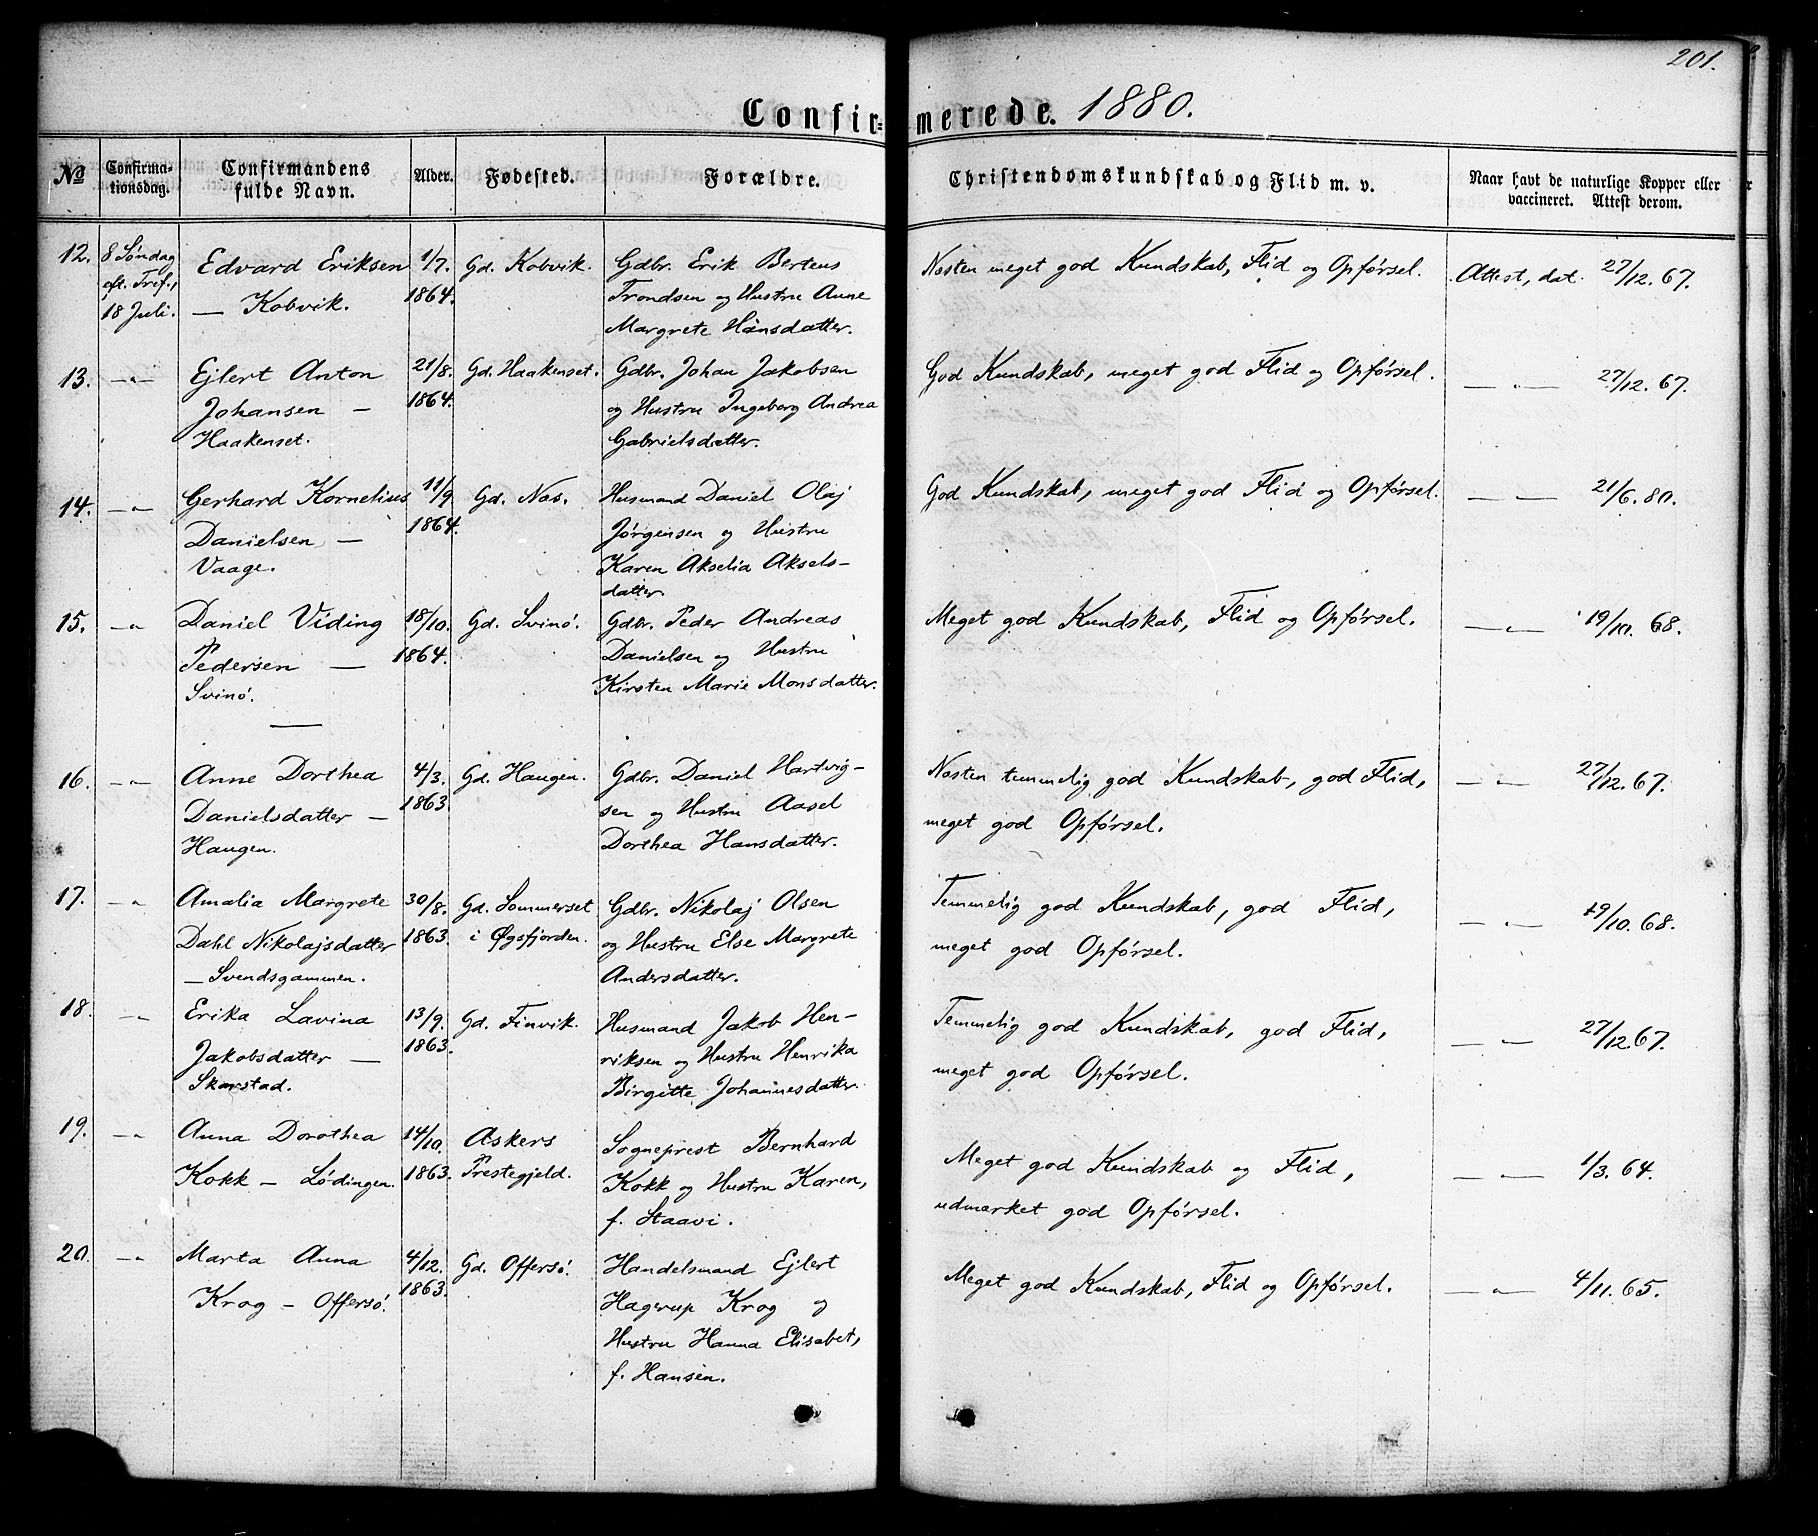 201.
Confirmerede. 1880.
No
Confirmationsdag.
Confirmandens fulde Navn.
Alder.
Fødested.
Forældre.
Christendomskundskab og Flid m. v.
Naar havt de naturlige Kopper eller vaccineret. Attest derom.
12.
8 Søndag
eft. Tref.,
18 Juli.
Edvard Eriksen
— Kobvik.
1/7.
1864.
Gd. Kobvik.
Gdbr. Erik Berteus
Trondsen og Hustru Anne
Margrete Hansdatter.
Næsten meget god Kundskab, Flid og Opførsel.
Attest, dat. 27/12. 67.
13.
—"—
Ejlert Anton
Johansen —
Haakenset.
21/8.
1864.
Gd. Haakenset.
Gdbr. Johan Jakobsen
og Hustru Ingeborg Andrea
Gabrielsdatter.
God Kundskab, meget god Flid og Opførsel.
—"— 27/12. 67.
14.
—"—
Gerhard Kornelius
Danielsen —
Vaage.
11/9
1864.
Gd. Næs.
Husmand Daniel Olaj
Jørgensen og Hustru
Karen Akselia Aksels-
datter.
God Kundskab, meget god Flid og Opførsel.
—"— 21/6. 80.
15.
—"—
Daniel Viding
Pedersen —
Svinø.
18/10.
1864.
Gd. Svinø.
Gdbr. Peder Andreas
Danielsen og Hustru
Kirsten Marie Monsdatter.
Meget god Kundskab, Flid og Opførsel.
—"— 19/10. 68.
16.
—"—
Anne Dorthea
Danielsdatter —
Haugen.
4/3.
1863.
Gd. Haugen.
Gdbr. Daniel Hartvig-
sen og Hustru Aasel
Dorthea Hansdatter.
Næsten temmelig god Kundskab, god Flid,
meget god Opførsel.
—"— 27/12. 67.
17.
—"—
Amalia Margrete
Dahl Nikolajsdatter
— Svendsgammen.
30/8.
1863.
Gd. Sommerset
i Øgsfjorden.
Gdbr. Nikolaj Olsen
og Hustru Else Margrete
Andersdatter.
Temmelig god Kundskab, god Flid,
meget god Opførsel.
—"— 19/10. 68.
18.
—"—
Erika Lavina
Jakobsdatter —
Skarstad.
13/9.
1863.
Gd. Finvik.
Husmand Jakob Hen-
riksen og Hustru Henrika
Birgitte Johannesdatter.
Temmelig god Kundskab, god Flid,
meget god Opførsel.
—"— 27/12. 67.
19.
—"—
Anna Dorothea
Kokk — Lødingen.
14/10.
1863.
Askers
Prestegjeld.
Sogneprest Bernhard
Kokk og Hustru Karen,
f. Staavi.
Meget god Kundskab og Flid,
udmærket god Opførsel.
—"— 1/3. 64.
20.
—"—
Marta Anna
Krog — Offersø.
4/12.
1863.
Gd. Offersø.
Handelsmand Ejlert
Hagerup Krog og
Hustru Hanna Elisabet,
f. Hansen.
Meget god Kundskab, Flid og Opførsel.
—"— 4/11. 65.